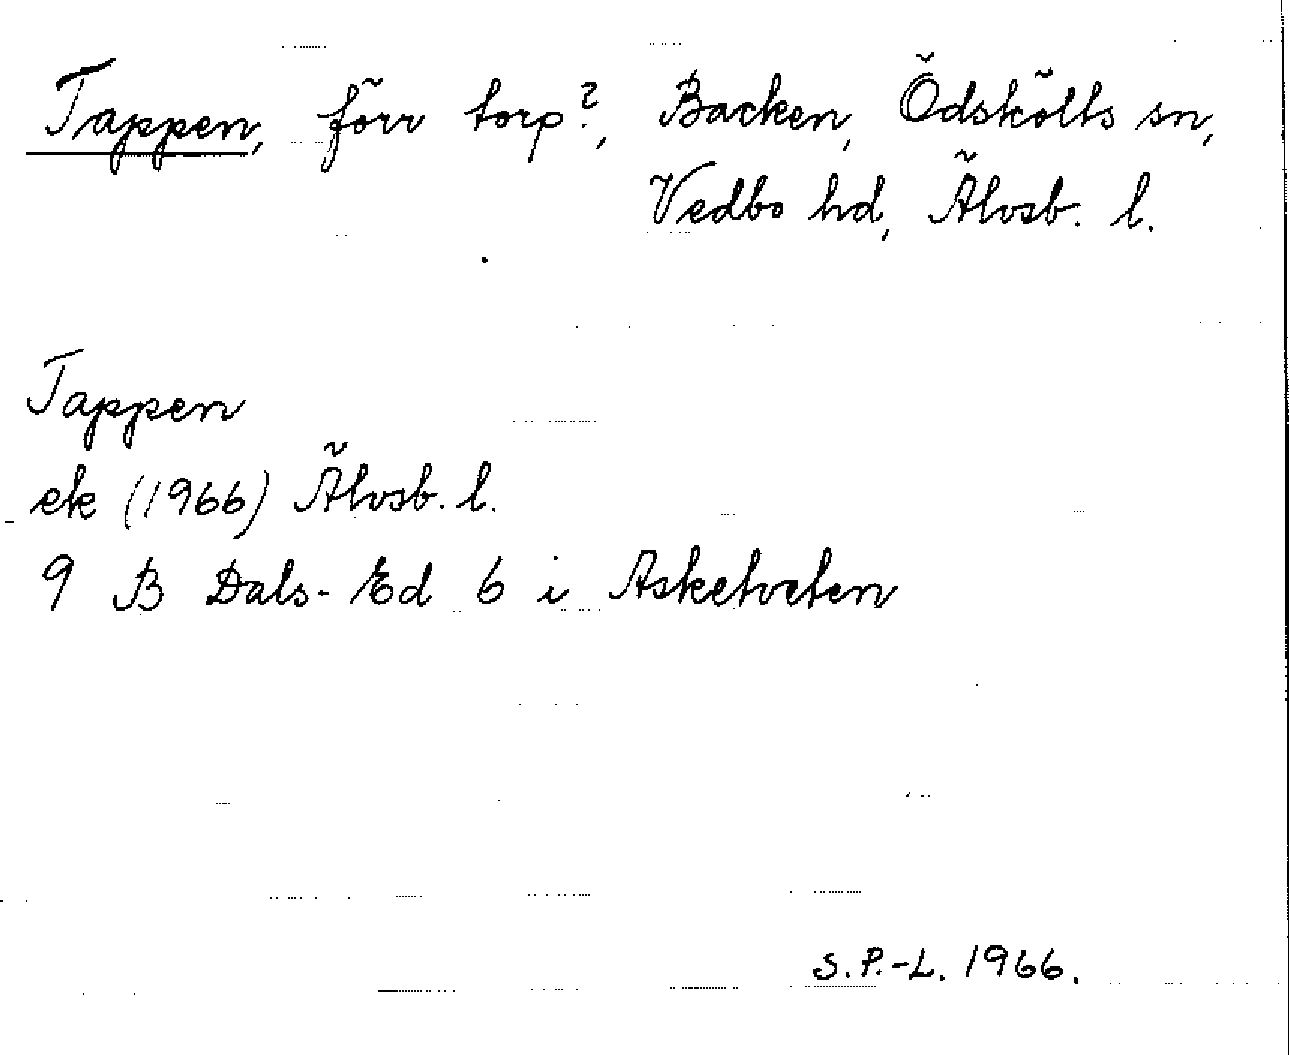 Tappen, förr torp?, Backen, Ödskölts sn,
Vedbo hd, Älvsb. l.
Tappen
ek (1966) Älvsb. l.
9 B Dals-Ed 6 i Asketveten
S.P.-L. 1966.